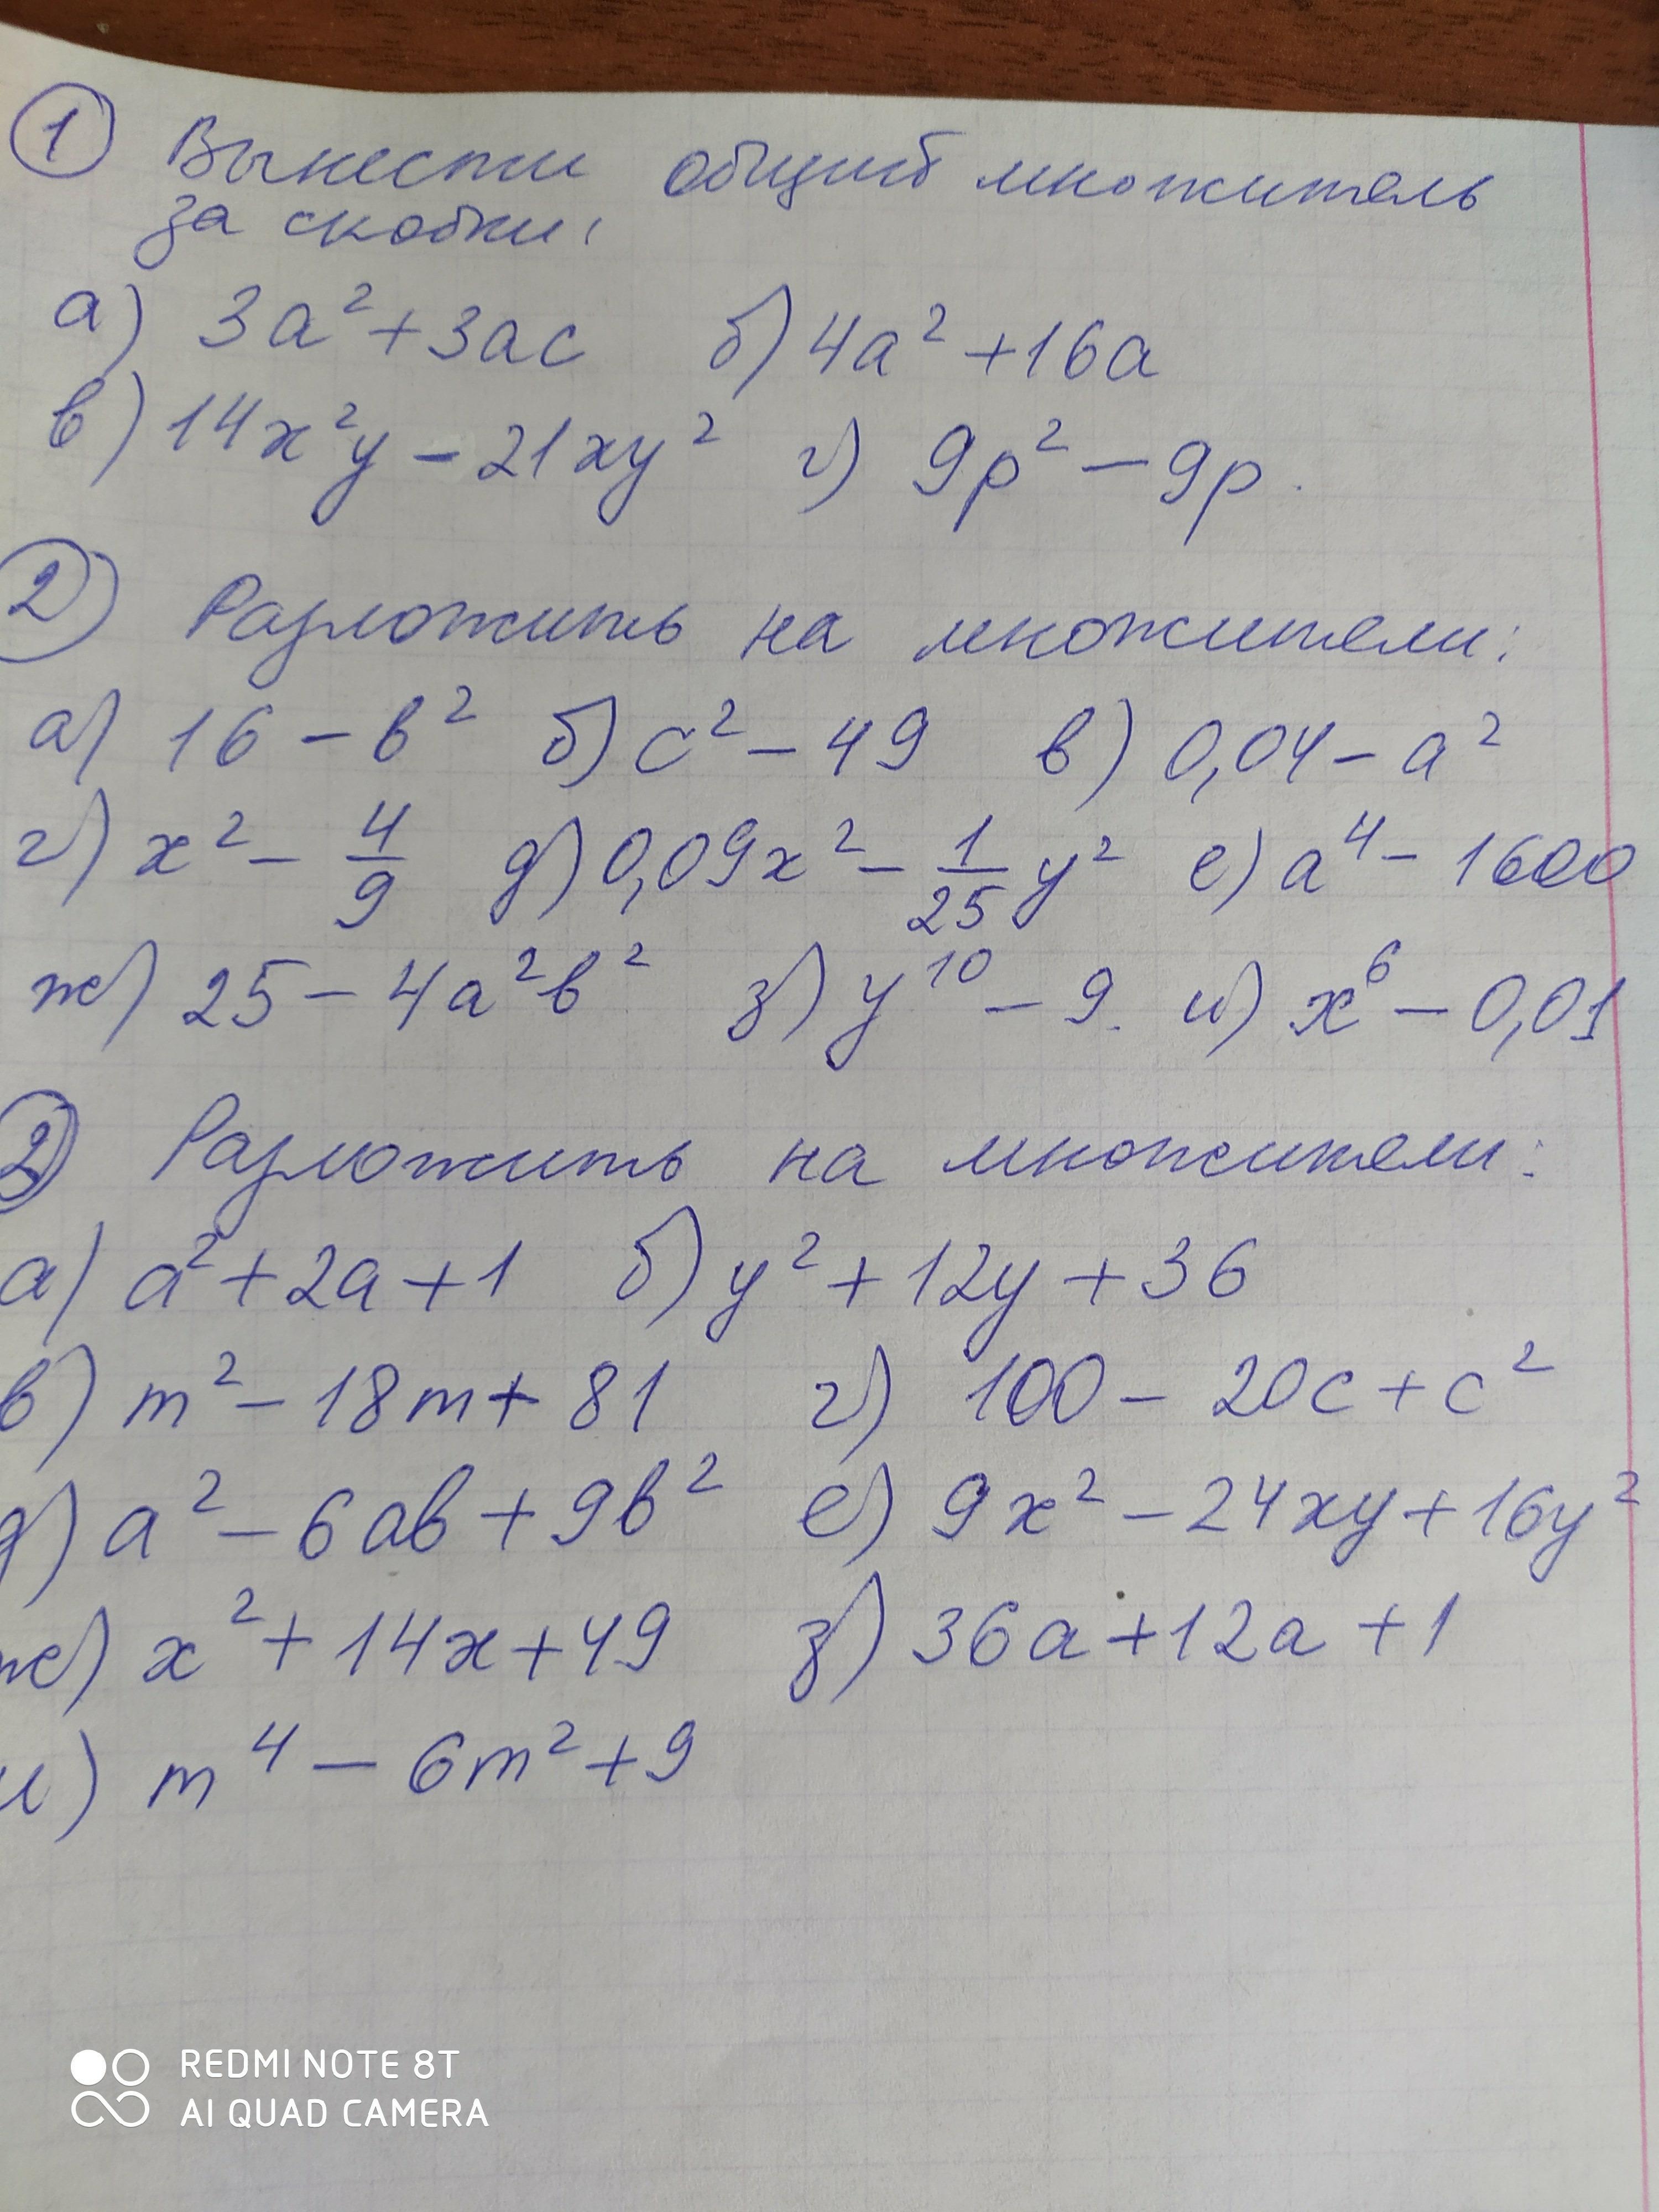 1 Вынести общий множитель
за скобки:
а) 3a² + 3ac б) 4a² + 16a
в) 14x²y - 21xy² г) 9p² - 9p.
2 Разложить на множители:
а) 16 - b² б) c² - 49 в) 0,04 - a²
г) x² - 4/9 д) 0,09x² - 1/25 y² е) a⁴ - 1600
ж) 25 - 4a²b² з) y¹⁰ - 9. и) x⁶ - 0,01
3 Разложить на множители:
а) a² + 2a + 1 б) y² + 12y + 36
в) m² - 18m + 81 г) 100 - 20c + c²
д) a² - 6ab + 9b² е) 9x² - 24xy + 16y²
ж) x² + 14x + 49 з) 36a + 12a + 1
и) m⁴ - 6m² + 9
REDMI NOTE 8T
AI QUAD CAMERA